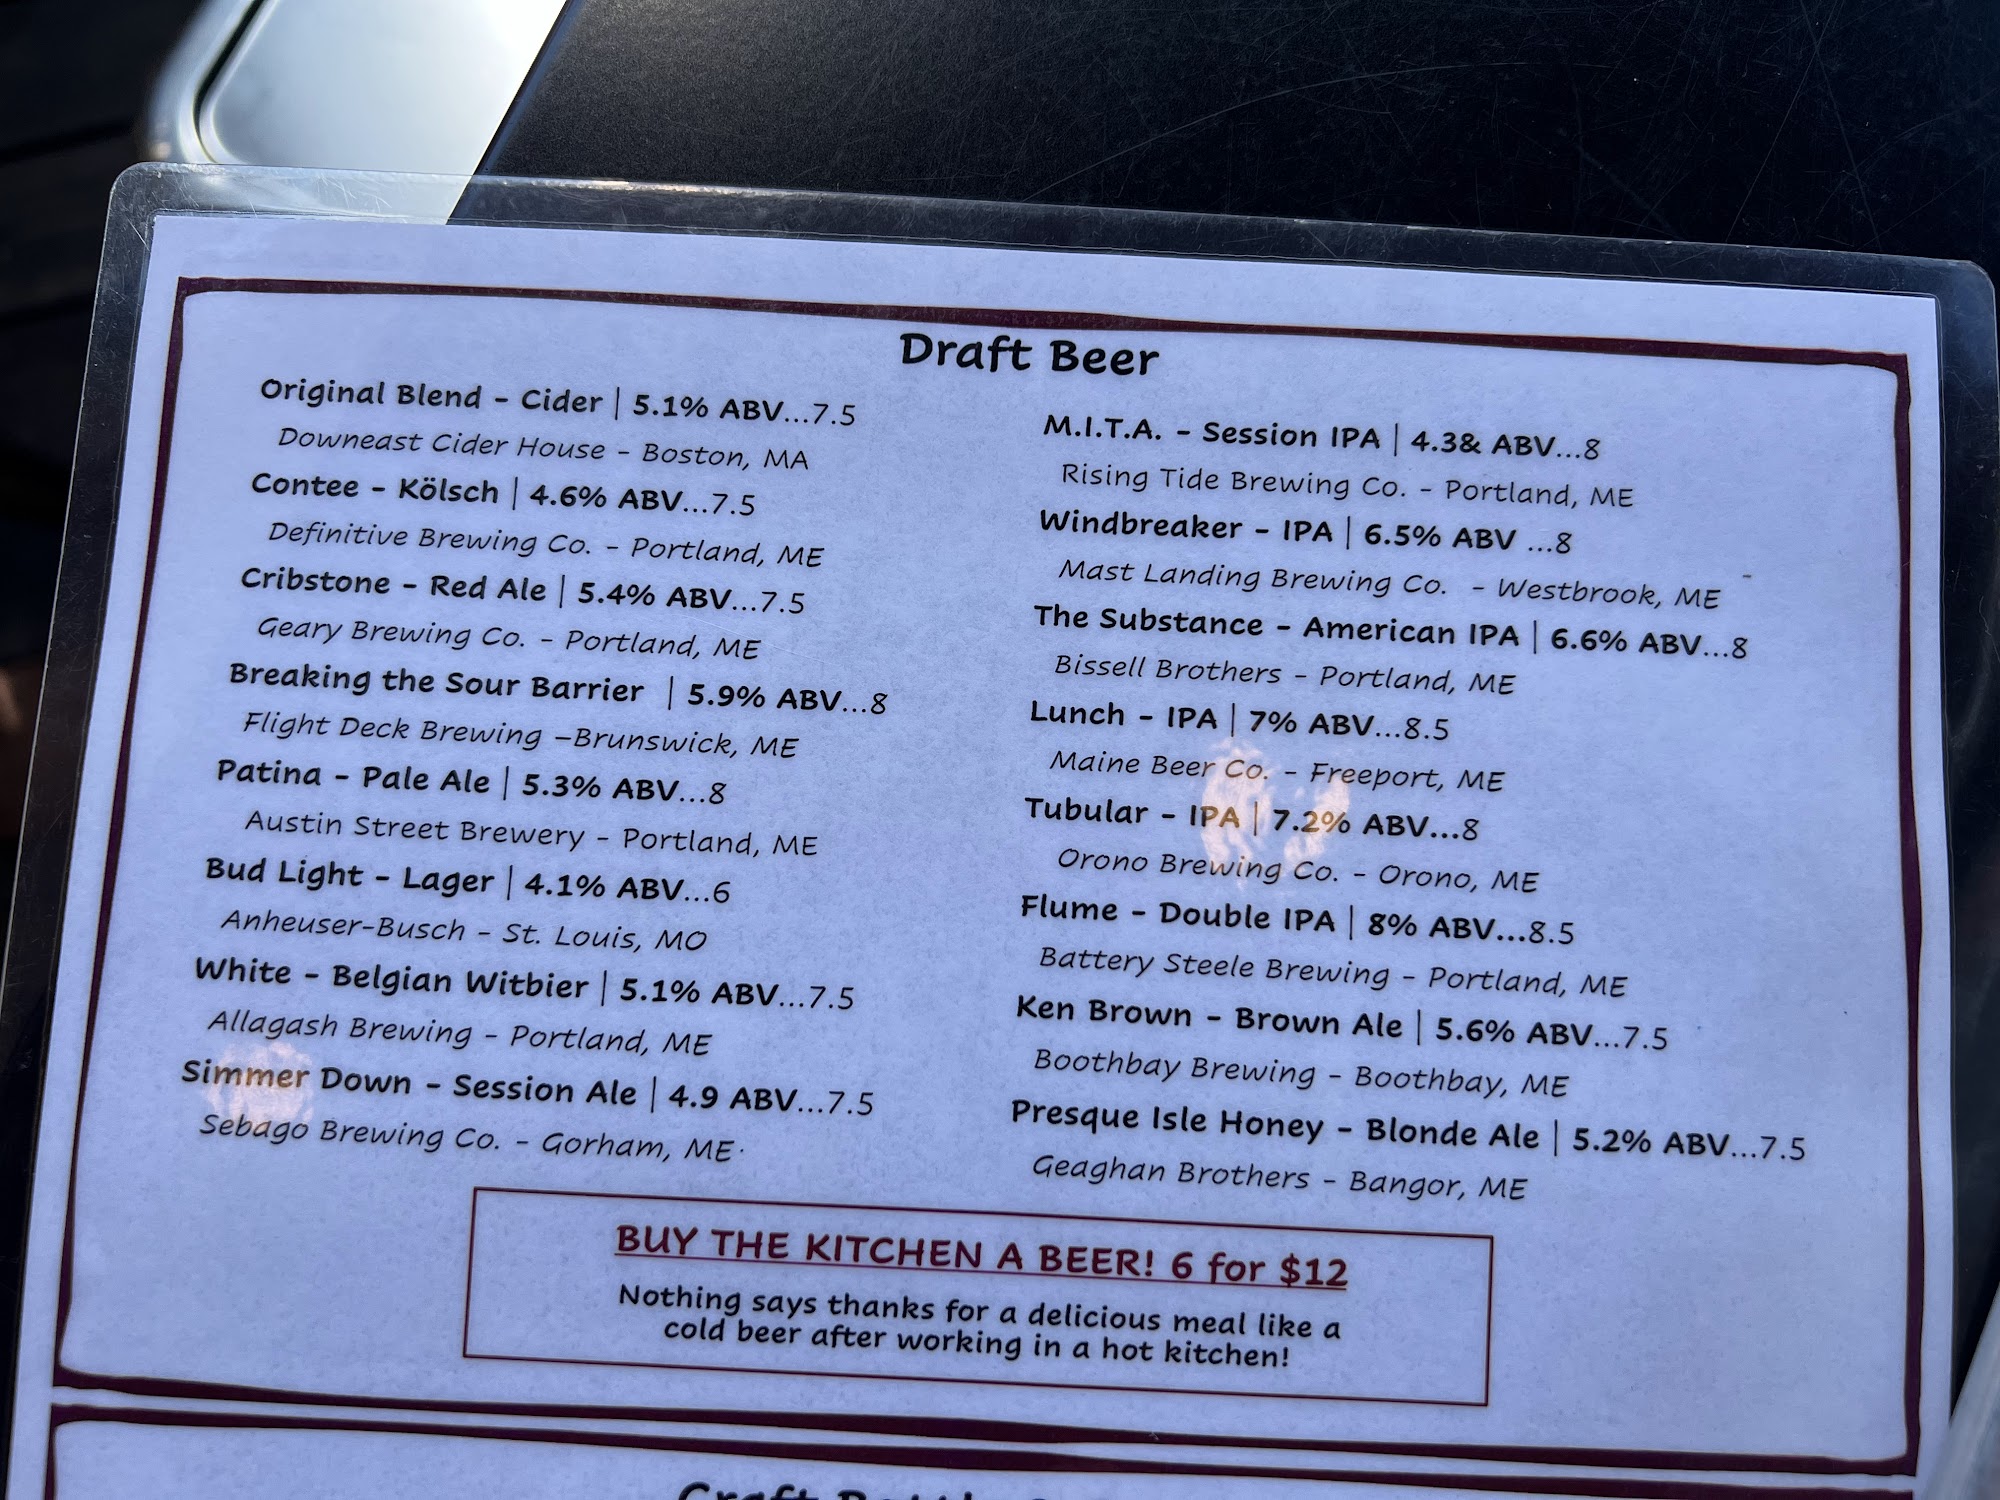 Draft Beer
Original Blend - Cider | 5.1% ABV...7.5
Downeast Cider House - Boston, MA
Contee - Kölsch | 4.6% ABV...7.5
Definitive Brewing Co. - Portland, ME
Cribstone - Red Ale | 5.4% ABV...7.5
Geary Brewing Co. - Portland, ME
Breaking the Sour Barrier | 5.9% ABV...8
Flight Deck Brewing –Brunswick, ME
Patina - Pale Ale | 5.3% ABV...8
Austin Street Brewery - Portland, ME
Bud Light - Lager | 4.1% ABV...6
Anheuser-Busch - St. Louis, MO
White - Belgian Witbier | 5.1% ABV...7.5
Allagash Brewing - Portland, ME
Simmer Down - Session Ale | 4.9 ABV...7.5
Sebago Brewing Co. - Gorham, ME
M.I.T.A. - Session IPA | 4.3& ABV...8
Rising Tide Brewing Co. - Portland, ME
Windbreaker - IPA | 6.5% ABV ...8
Mast Landing Brewing Co. - Westbrook, ME
The Substance - American IPA | 6.6% ABV...8
Bissell Brothers - Portland, ME
Lunch - IPA | 7% ABV...8.5
Maine Beer Co. - Freeport, ME
Tubular - IPA | 7.2% ABV...8
Orono Brewing Co. - Orono, ME
Flume - Double IPA | 8% ABV...8.5
Battery Steele Brewing - Portland, ME
Ken Brown - Brown Ale | 5.6% ABV...7.5
Boothbay Brewing - Boothbay, ME
Presque Isle Honey - Blonde Ale | 5.2% ABV...7.5
Geaghan Brothers - Bangor, ME
BUY THE KITCHEN A BEER! 6 for $12
Nothing says thanks for a delicious meal like a
cold beer after working in a hot kitchen!
Craft